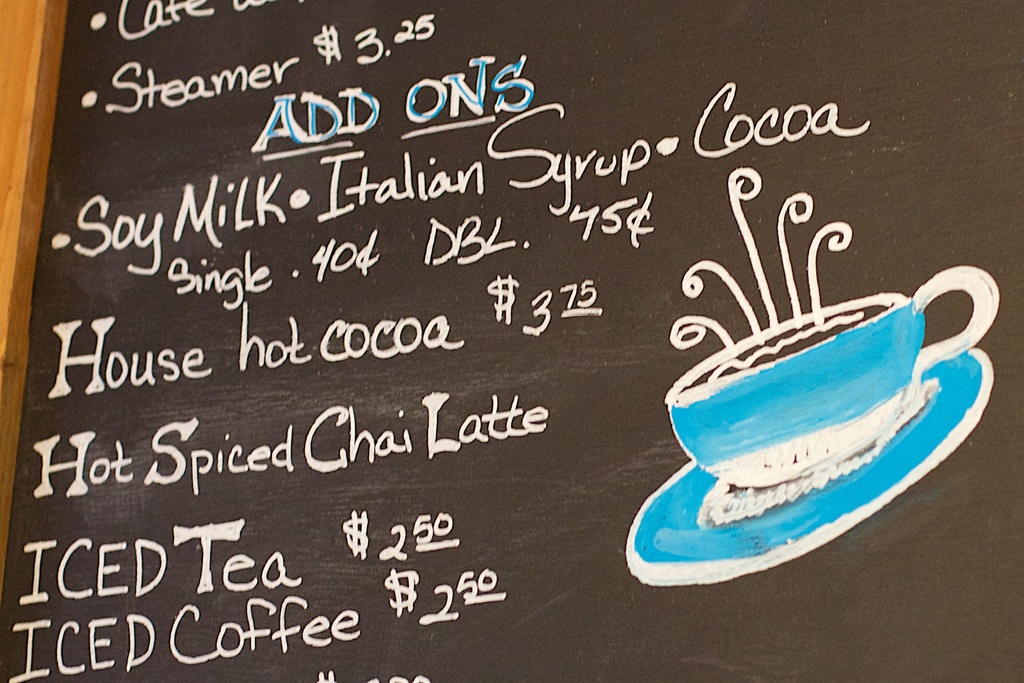 • Cafe
• Steamer $3.25
ADD ONS
• Soy Milk • Italian Syrup • Cocoa
Single . 40¢ DBL. 75¢
House hot cocoa $3 75
Hot Spiced Chai Latte
ICED Tea $2 50
ICED Coffee $2 50
$